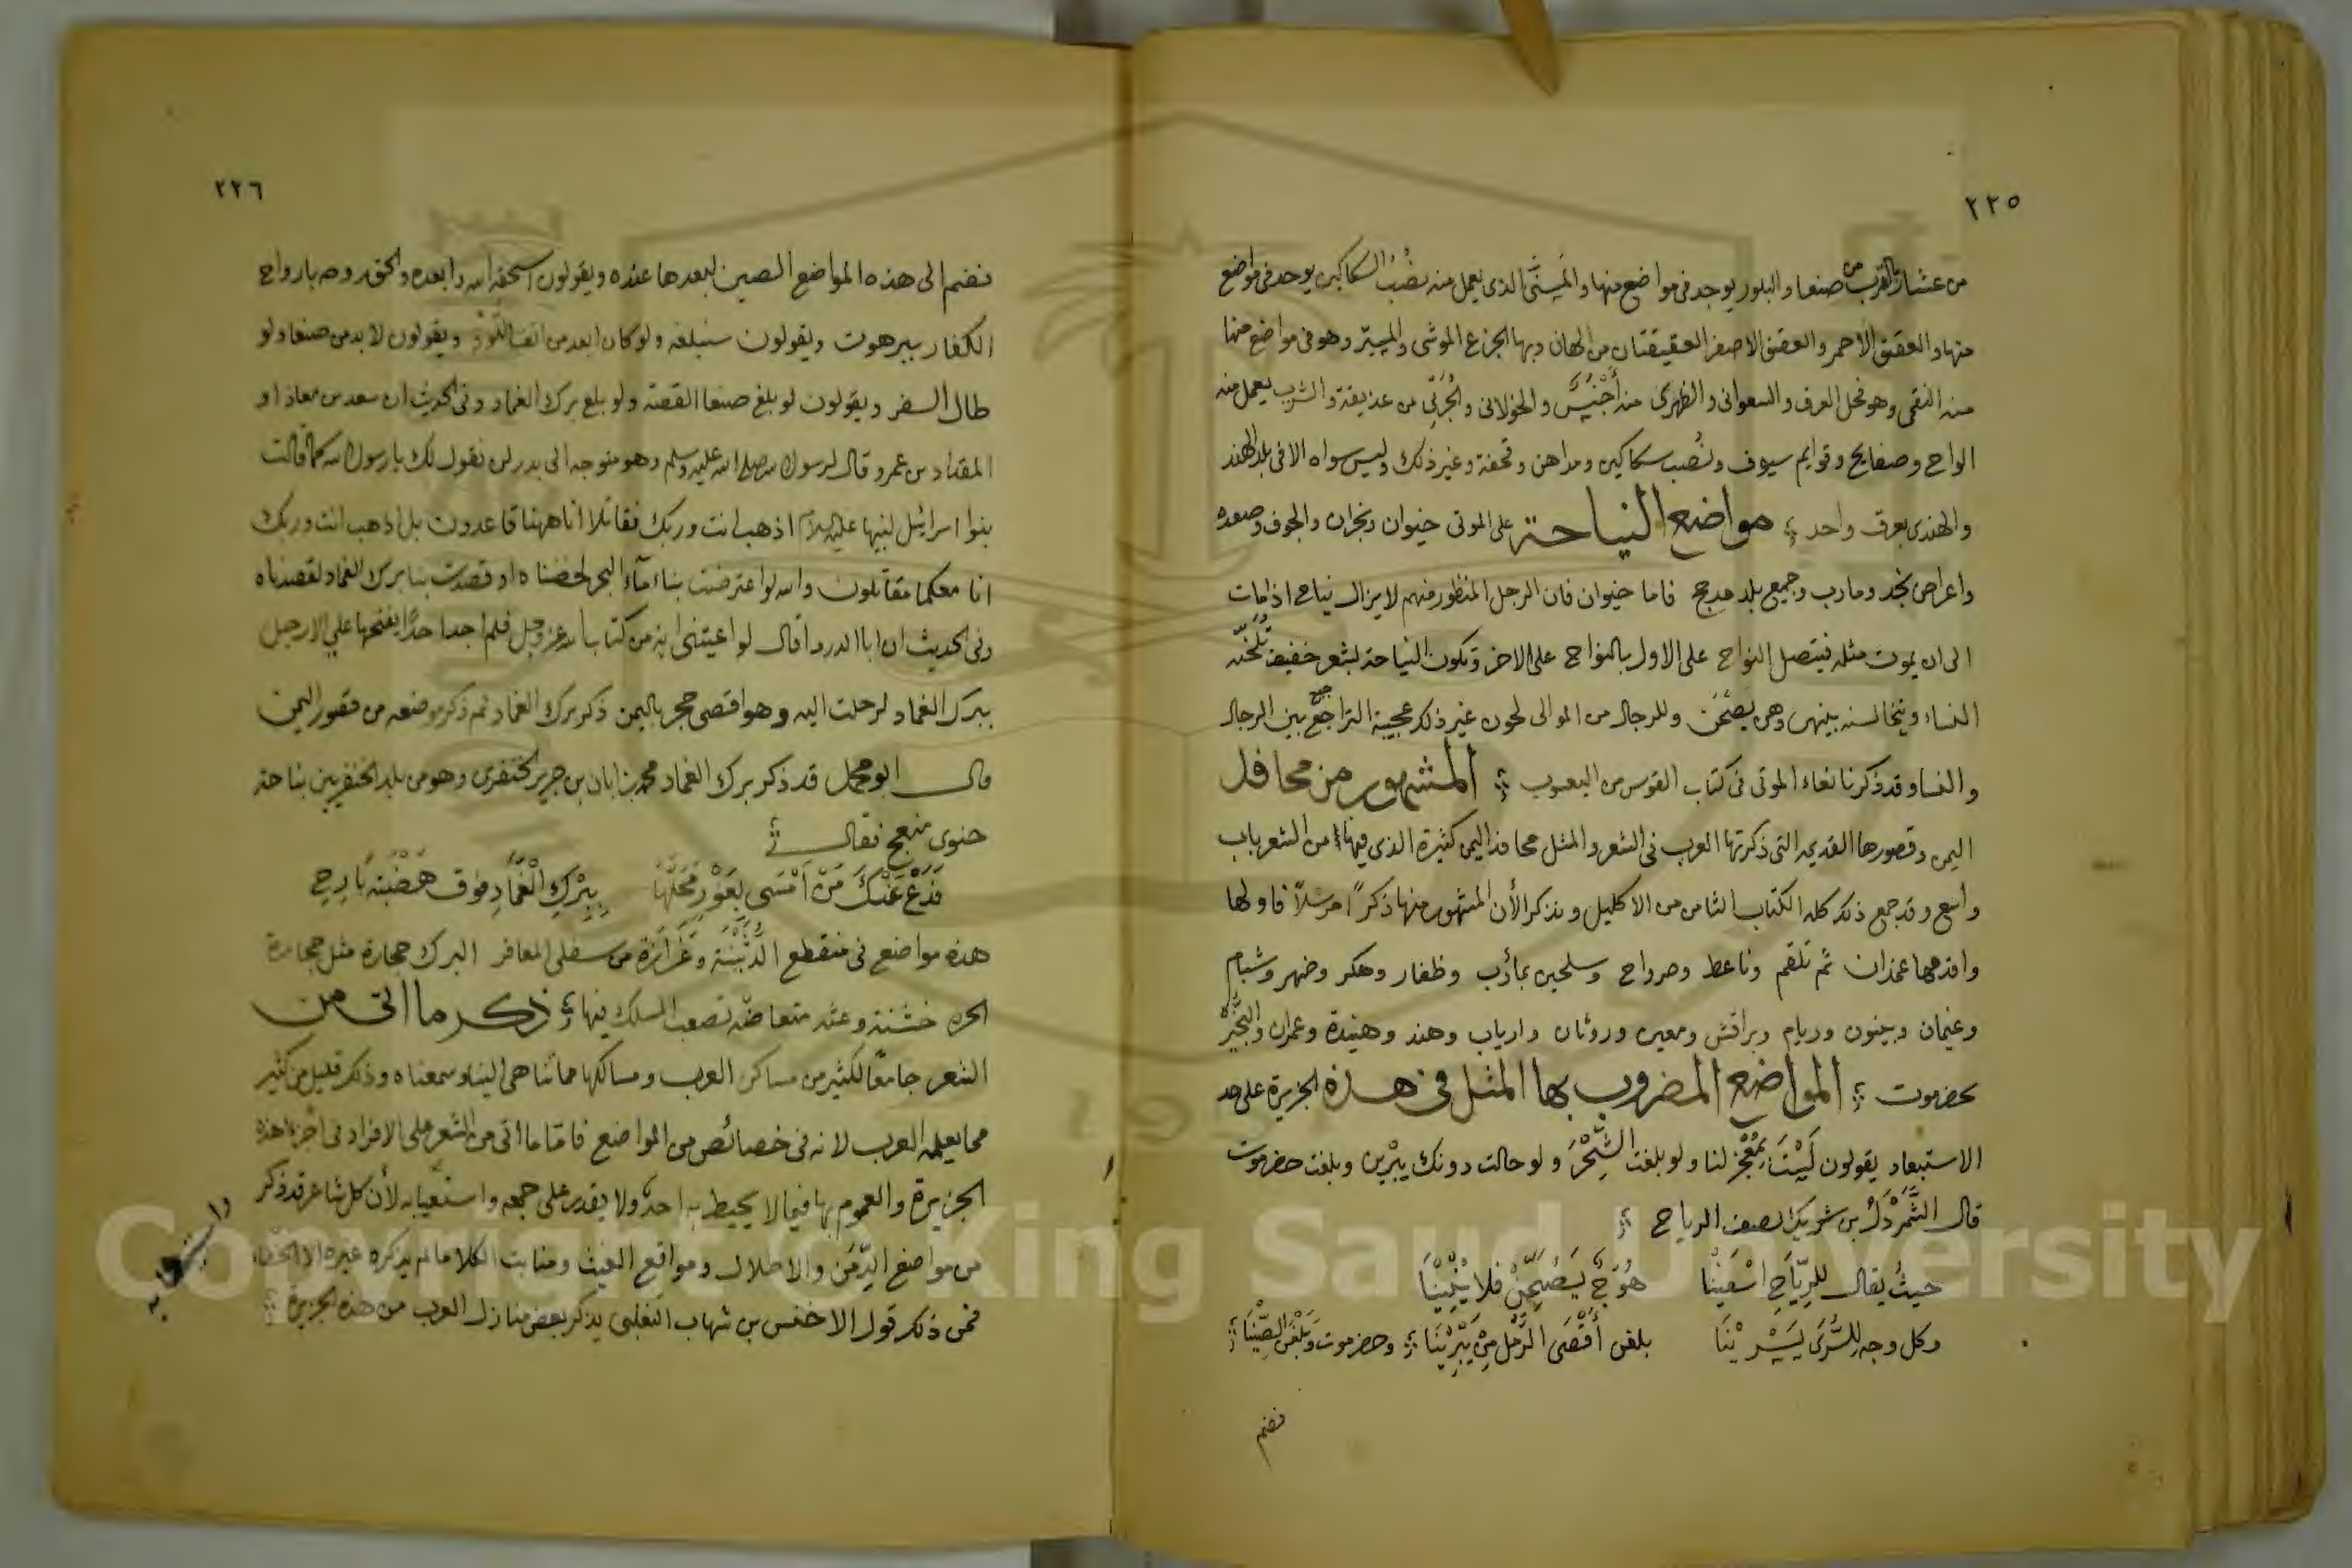 ٢٢٥
من عشار بالقرب من صنعا والبلور يوجد فى مواضع منها والمسنى الذى يعمل منه نصب السكاكين يوجد فى مواضع
منها والعقيق الاحمر والعقيق الاصفر العقيقتان من الهان وبها الجزع الموشى والمسير وهو فى مواضع منها
منه النقمى وهو فحل العرف والسعوانى والظهرى منه اجنس والخولانى والجرتى من عذيقة والشزب يعمل منه
الواح وصفايح وقوايم سيوف ونصب سكاكين ومداهن وقحفة وغير ذلك وليس سواه الا فى بلد الهند
والهندى بعرق واحد مواضع النياحة على الموتى خيوان ونجران والجوف وصعده
واعراض نجد ومارب وجميع بلد مدحج فاما خيوان فان الرجل المنظور منهم لا يزال يناح اذا مات
الى ان يموت مثله فيتصل النواح على الاول بالنواح على الاخر وتكون النياحة بشعر خفيف تلحنه
النساء ويتخالسنه بينهن وهن يصحن وللرجال من الموالى لحون غير ذلك عجيبة التراجع بين الرجال
والنسا وقد ذكرنا نعاء الموتى فى كتاب القوس من اليعسوب المشهور من محافد
اليمن وقصورها القديمه التى ذكرتها العرب فى الشعر والمثل محافد اليمن كثيرة الذى فيها من الشعر باب
واسع وقد جمع ذلك كله الكتاب الثامن من الاكليل ونذكر الأن المشهور منها ذكرا مرسلا فاولها
واقدمها غمدان ثم تلقم وناعط وصرواح وسلحين بمأرب وظفار وهكر وضهر وشبام
وغيمان وبينون وريام وبراقش ومعين وروثان وارياب وهند وهنيدة وعمران والنجير
بحضرموت المواضع المضروب بها المثل فى هذه الجزيرة على حد
الاستبعاد يقولون ليست بمعجز لنا ولو بلغت الشحر ولو حالت دونك يبرين وبلغت حضرموت
قال الشمردل بن شريك يصف الرياح
حيث يقال للرياح اسفينا هوج يصبحن فلا ينبينا
وكل وجه للسرى يسرينا بلغن أقصى الرمل من يبرينا وحضرموت وبلغن الصينا
فضم
٢٢٦
فضم الى هذه المواضع الصين لبعدها عنده ويقولون اسحقه الله وابعده والحق روحه بارواح
الكفار ببرهوت ويقولون سنبلغه ولو كان ابعد من ويقولون لا بد من صنعا ولو
طال السفر ويقولون لو بلغ صنعا القصة ولو بلغ برك الغماد وفى الحديث ان سعد بن معاذ او
المقداد بن عمرو قال لرسول الله صلى الله عليه وسلم وهو متوجه الى بدر لن نقول لك يا رسول الله كما قالت
بنوا اسرائيل لنبيها عليه السلام اذهب انت وربك فقاتلا انا ههنا قاعدون بل اذهب انت وربك
انا معكما مقاتلون والله لو اعترضت بنا ماء البحر لخضناه او قصدت بنا برك الغماد لقصدناه
وفى الحديث ان ابا الدردا قال لو اعيتنى اية من كتاب الله عز وجل فلم اجد احدا يفتحها على الا رجل
ببرك الغماد لرحلت اليه وهو اقصى حجر باليمن ذكر برك الغماد ثم ذكر موضعه من قعور اليمن
قال ابو محمد قد ذكر برك الغماد محمد بن ابان بن جرير الخنفرى وهو من بلد الخنفريين بناحية
جنوى منبعج فقال
فدع عنك من أمسى بغور محلها ببرك الغماد فوق هضبة بارح
هذه مواضع فى منقطع الدثينة وغرازة من سفلى المعافر البرك حجارة مثل حجارة
الحره خشنة وعثه متعاضه تصعب المسلك فيها ذكر ما اتى من
الشعر جامعا لكثير من مساكن العرب ومسالكها مما تناهى الينا وسمعناه وذلك قليل من كثير
مما يعلمه العرب لانه فى خصائص من المواضع فامتا ما اتى من الشعر على الافراد فى اجزا هذه
الجزيرة والعموم بها فيما لا يحيط به احد ولا يقدر على جمعه واستعيابه لأن كل شاعر قد ذكر
من مواضع الدمن والاطلال ومواقع الغيث ومنابت الكلا ما لم يذكره غيره الا الخطاء
فمن ذلك قول الاخنس بن شهاب التغلبى يذكر بعض منازل العرب من هذه الجزيرة
Copyright © King Saud University
1957